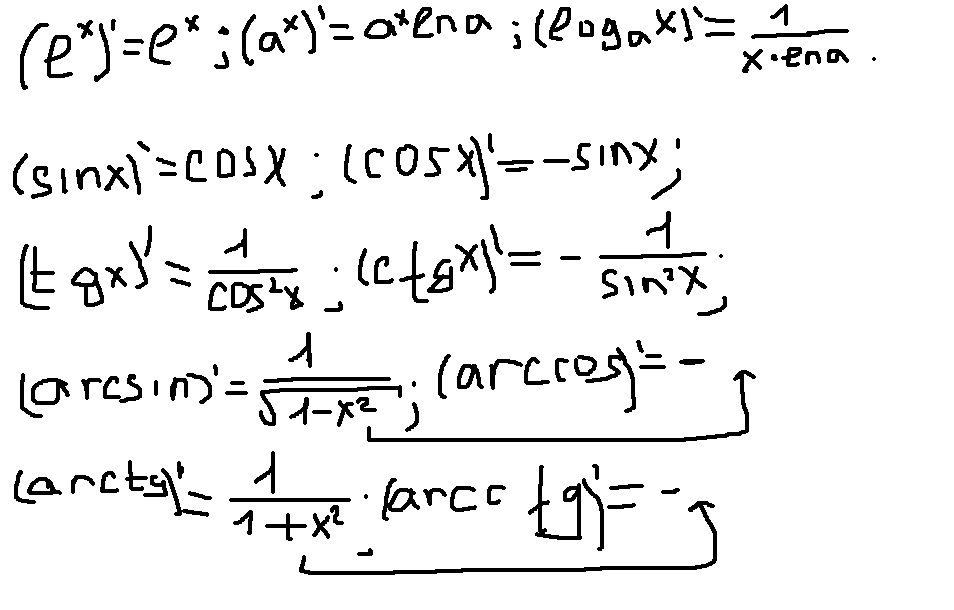 (eˣ)'=eˣ; (aˣ)'=aˣlna; (logₐx)'=1/(x·lna).
(sinx)'=cosx; (cosx)'=-sinx;
(tgx)'=1/cos²x; (ctgx)'=-1/sin²x;
(arcsin)'=1/√(1-x²); (arccos)'=-
(arctg)'=1/(1+x²); (arcctg)'=-